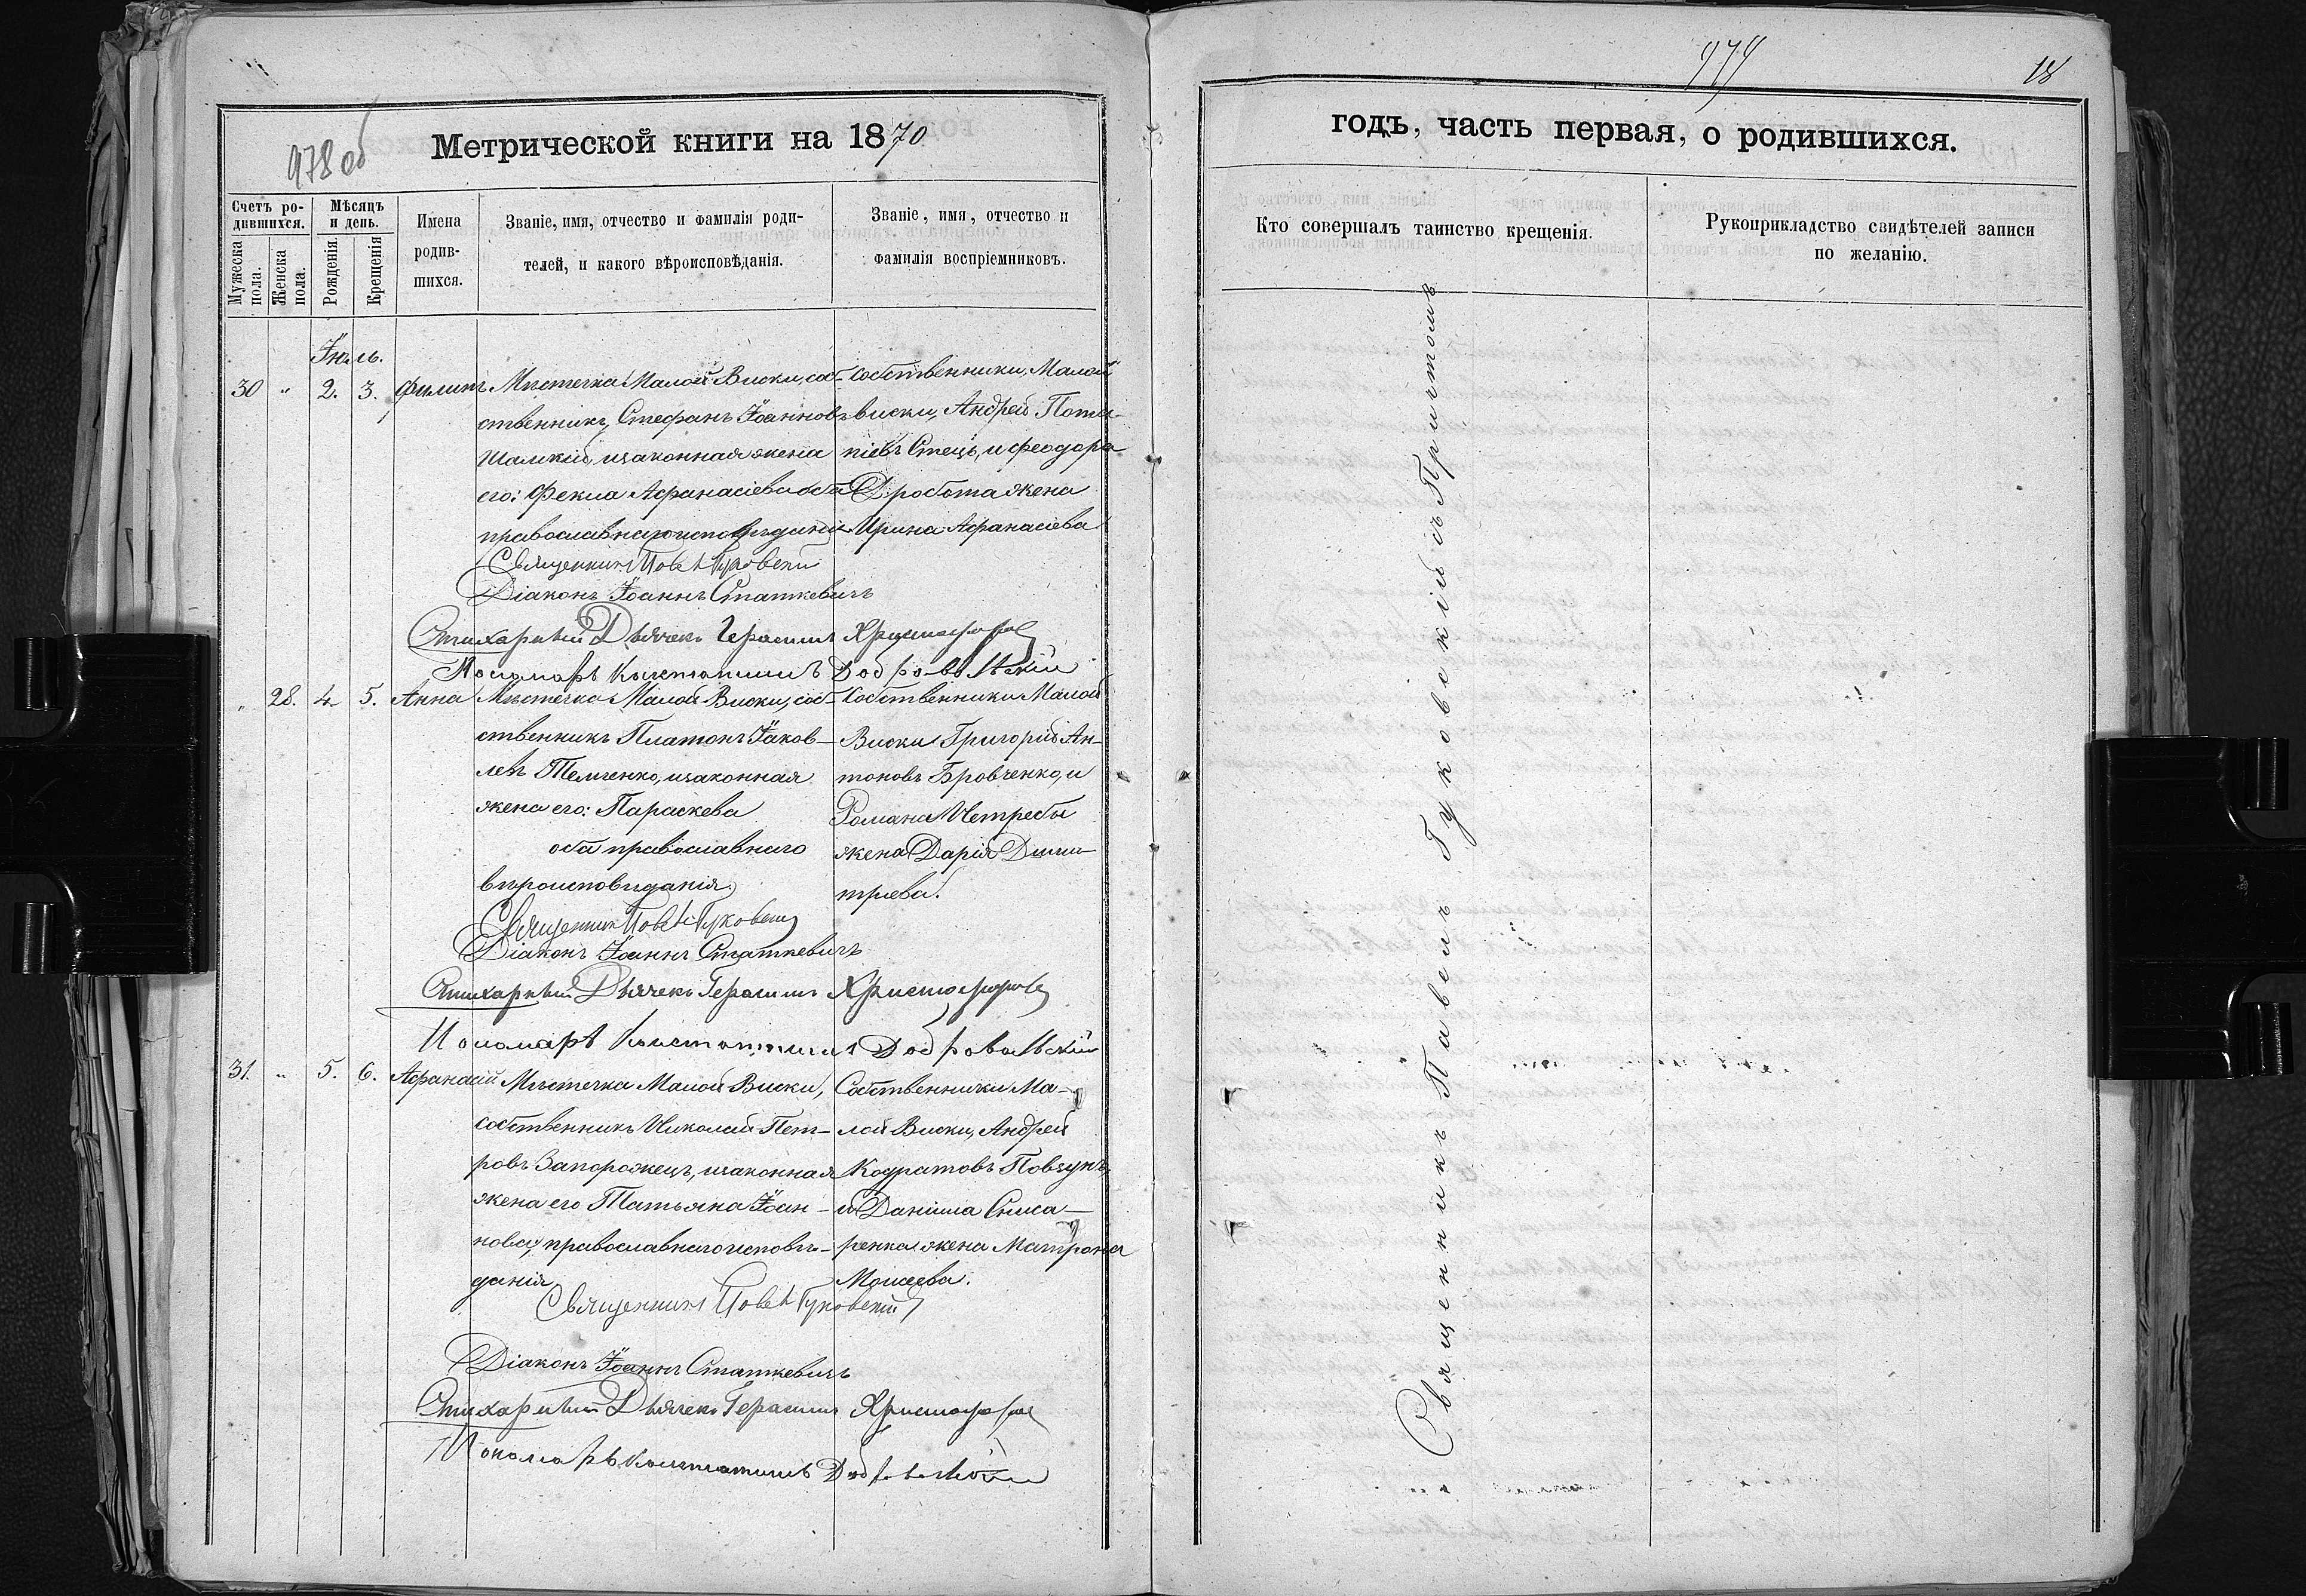 978 об
Метрической книги на 1870
Счетъ ро-
дившихся.
Мѣсяцъ
и день.
Мужеска
пола.
Женска
пола.
Рожденія.
Крещенія
Имена
родив-
шихся.
Званіе, имя, отчество и фамилія роди-
телей, и какого вѣроисповѣданія.
Званіе, имя, отчество и
фамилія воспріемниковъ.
Іюль.
30 " 2. 3. Филипъ
Мѣстечка Малой Виски, соб-
ственникъ, Стефанъ Іоанновъ
изаконная жена
его: Фекла Афанасіева оба
православнаго исповѣданія
Собственники, Малой
Виски, Андрей Пота-
піевъ Стецъ, и Феодора
Дробота жена
Ирина Афанасіева
Священникъ Павелъ Гуковскій
Діаконъ Іоаннъ Статкевичъ
Стихарный Дьячекъ Герасимъ Христофоровъ
Пономарь Константинъ Добровольскій
" 28. 4. 5. Анна
Мѣстечка Малой Виски, соб-
ственникъ Платонъ Іаков-
левъ Темченко, изаконная
жена его: Параскева
оба православнаго
вѣроисповѣданія.
Собственники Малой
Виски Григорій Ан-
тоновъ Бровченко, и
Романа Нетребы
жена Дарія Дими-
тріева.
Священникъ Павелъ Гуковскій
Діаконъ Іоаннъ Статкевичъ
Стихарный Дьячекъ Герасимъ Христофоровъ
Пономарь Константинъ Добровольскій
31. " 5. 6. Афанасій
Мѣстечка Малой Виски,
собственникъ Николай Пет-
ровъ Запорожецъ, изаконная
жена его Татьяна Іоан-
нова, православнаго исповѣ-
данія
Собственники Ма-
лой Виски, Андрей
Кодратовъ Повзунъ,
и Даніила Слиса-
ренка жена Матрона
Моисеева.
Священникъ Павелъ Гуковскій
Діаконъ Іоаннъ Статкевичъ
Стихарный Дьячекъ Герасимъ Христофоровъ
Пономарь Константинъ Добровольскій
979
18
годъ, часть первая, о родившихся.
Кто совершалъ таинство крещенія.
Рукоприкладство свидѣтелей записи
по желанію.
Священникъ Павелъ Гуковскій съ Причтомъ